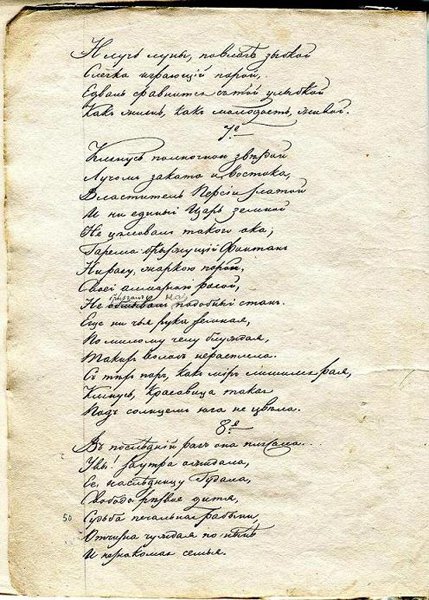 И лучъ луны, по влагѣ зыбкой
Слегка играющій порой,
Едваль сравнится съ той улыбкой
Какъ жизнь, какъ молодость, живой.
7.е
Клянусь полночною звѣздой
Лучомъ заката и востока,
Властитель Персіи златой
И ни единый Царь земной
Не цѣловалъ такого ока,
Гарема брызжущій фонтанъ
Ни разу, жаркою порой,
Своей алмазною росой,
Не омывалъ подобный станъ.
Еще ни чья рука земная,
По милому челу блуждая,
Такихъ волосъ не расплела.
Съ тѣхъ поръ, какъ міръ лишился рая,
Клянусь, красавица такая
Подъ солнцемъ юга не цвѣла.
8.е
Въ послѣдній разъ она плясала...
Увы! заутра ожидала,
Ее, наслѣдницу Гудала,
Свободы рѣзвое дитя,
50 Судьба печальная рабыни,
Отчизна чуждая по нынѣ
И незнакомая семья.